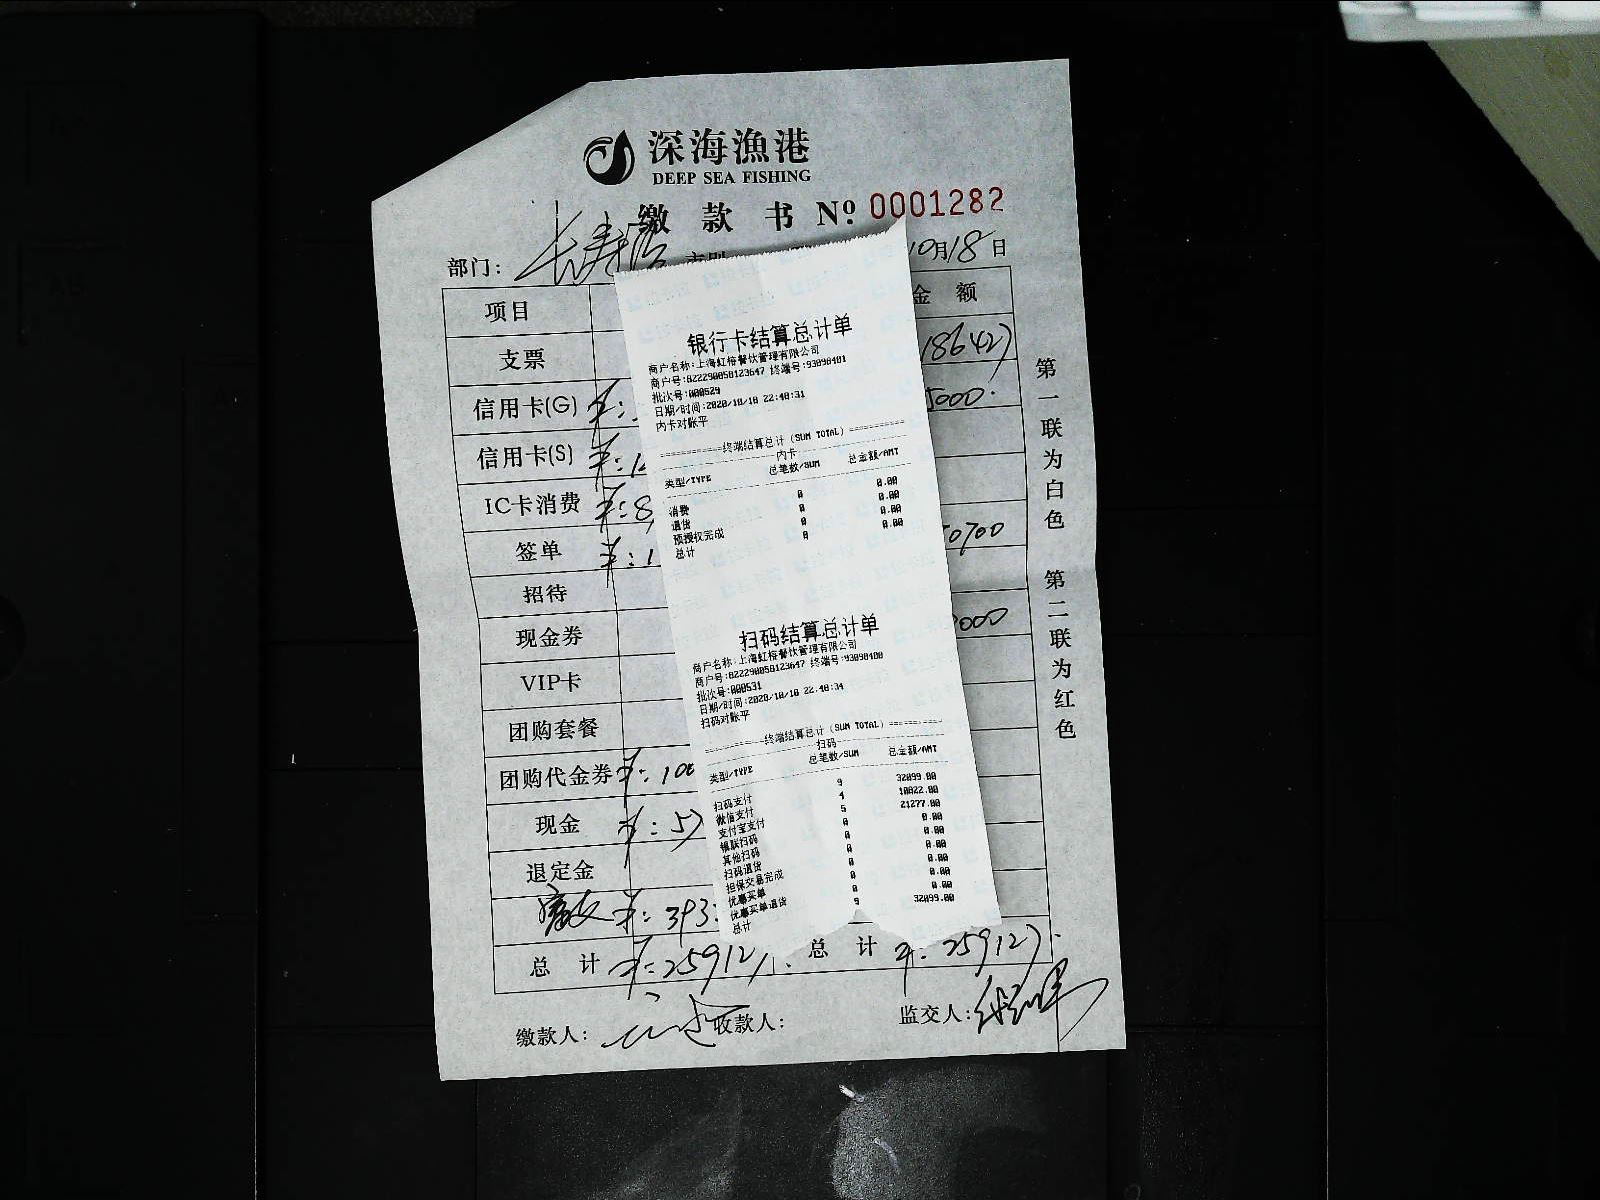 深海漁港
DEEP SEA FISHING
缴款书 Nº 0001282
部门: 长寿店 10月18日
项目 金额
支票 18642)
信用卡(G) ¥: 5000.
信用卡(S) ¥:
IC卡消费 ¥:8
签单 ¥:1 50700
招待
现金券 000
VIP卡
团购套餐
团购代金券 ¥:100
现金 ¥:5
退定金
¥: 393
总计 ¥:25912 总计 ¥:25912
缴款人: 收款人: 监交人:
第一联为白色 第二联为红色
银行卡结算总计单
商户名称:上海虹榕餐饮管理有限公司
商户号:822290058123647 终端号:93090401
批次号:000529
日期/时间:2020/10/18 22:40:31
内卡对账平
==========终端结算总计(SUM TOTAL)==========
内卡
类型/TYPE 总笔数/SUM 总金额/AMT
消费 0 0.00
退货 0 0.00
预授权完成 0 0.00
总计 0 0.00
扫码结算总计单
商户名称:上海虹榕餐饮管理有限公司
商户号:822290058123647 终端号:93090400
批次号:000531
日期/时间:2020/10/18 22:40:34
扫码对账平
==========终端结算总计(SUM TOTAL)==========
扫码
类型/TYPE 总笔数/SUM 总金额/AMT
扫码支付 9 32099.00
微信支付 4 10822.00
支付宝支付 5 21277.00
银联扫码 0 0.00
其他扫码 0 0.00
扫码退货 0 0.00
担保交易完成 0 0.00
优惠买单 0 0.00
优惠买单退货 0 0.00
总计 9 32099.00